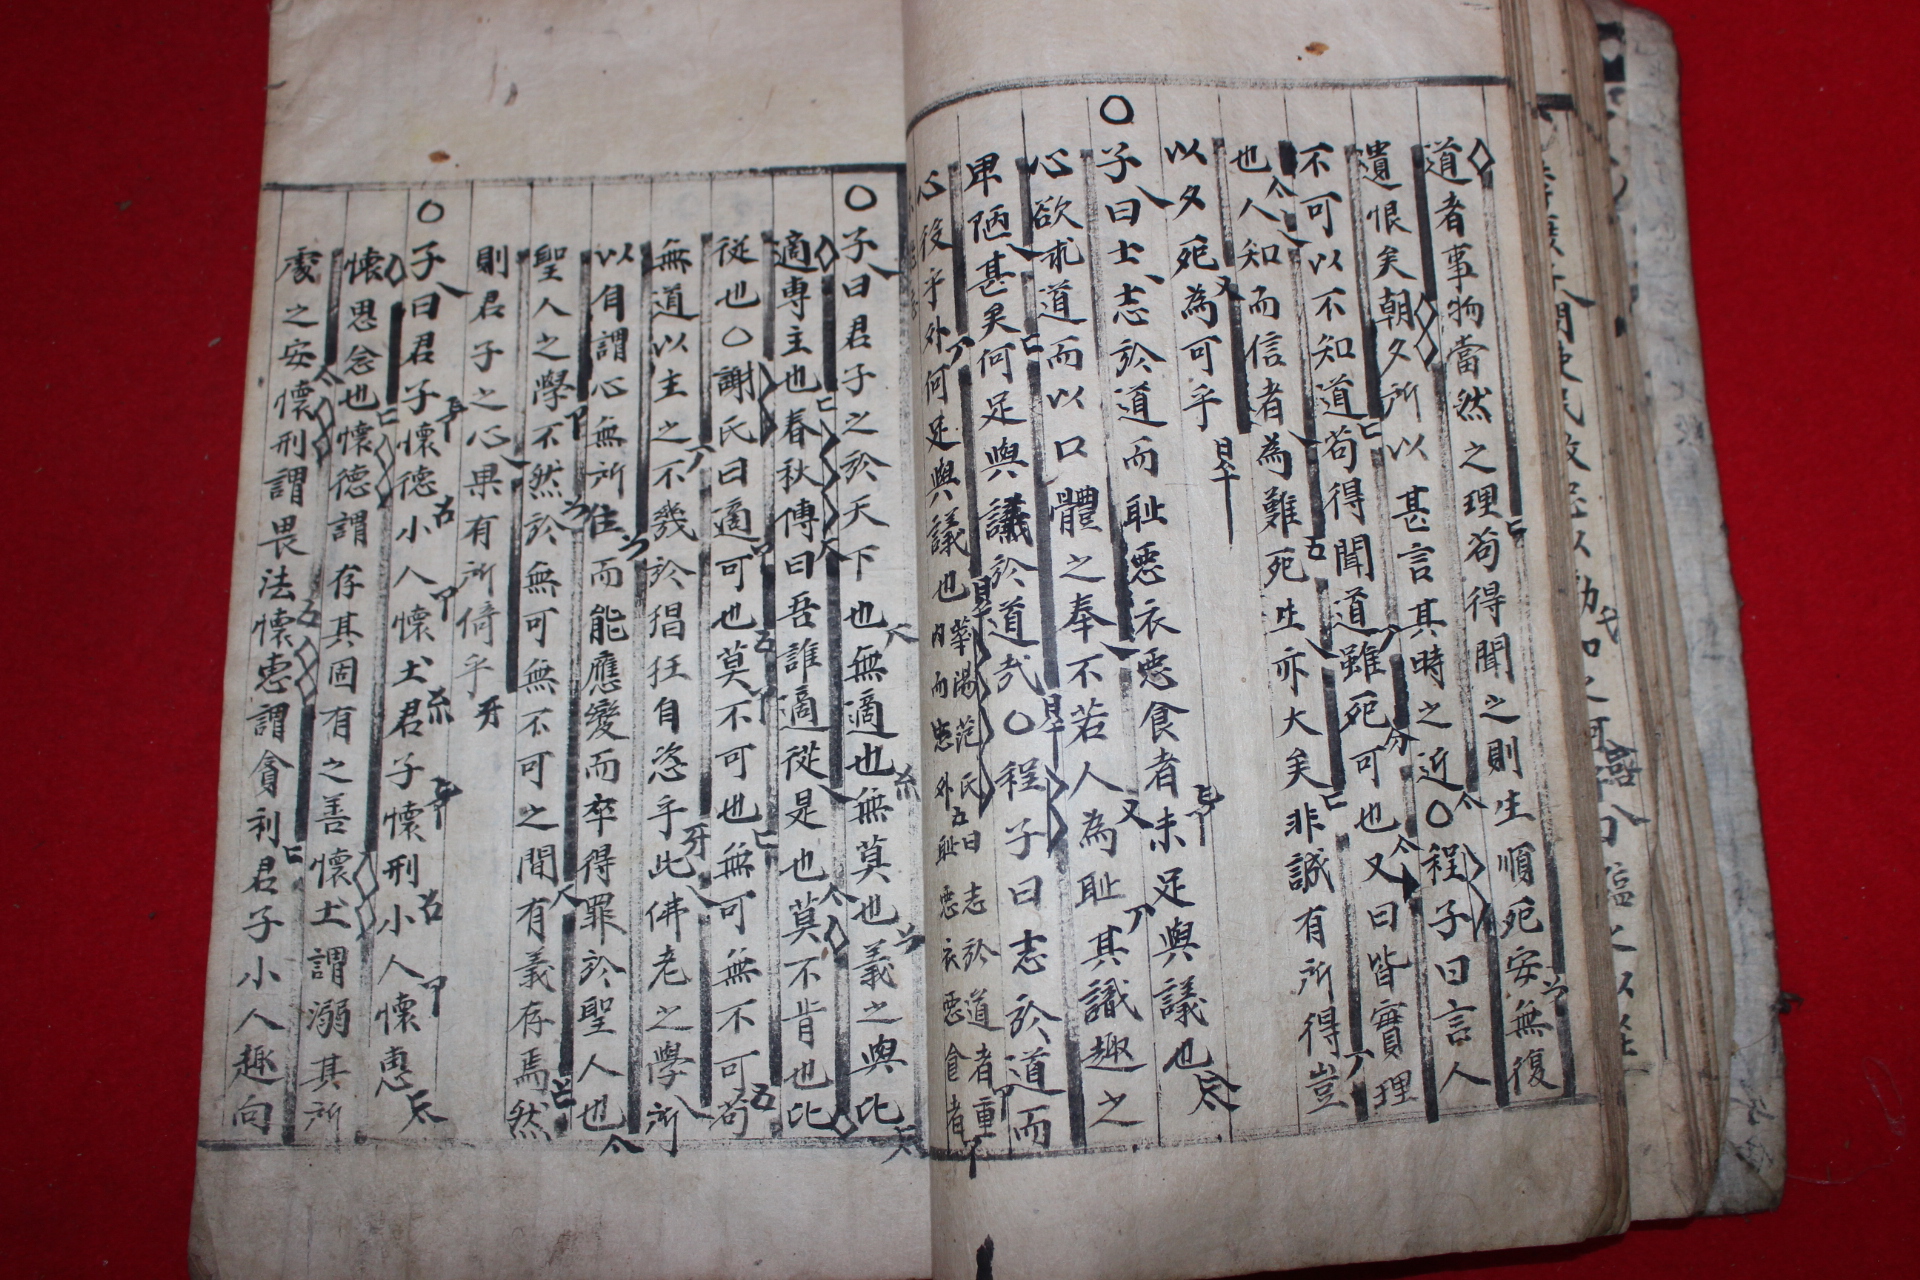 道者事物當然之理苟得聞之則生順死安無復
遺恨矣朝夕所以甚言其時之近○程子曰言人
不可以不知道苟得聞道雖死可也又曰皆實理
也人知而信者為難死生亦大矣非誠有所得豈
以夕死為可乎
○子曰士志於道而恥惡衣惡食者未足與議也
心欲求道而以口體之奉不若人為恥其識趣之
卑陋甚矣何足與議於道哉○程子曰志於道而
心役乎外何足與議也華陽范氏曰志於道者重
內而忽外恥惡衣惡食者
○子曰君子之於天下也無適也無莫也義之與比
適專主也春秋傳曰吾誰適從是也莫不肯也比
從也○謝氏曰適可也莫不可也無可無不可苟
無道以主之不幾於猖狂自恣乎此佛老之學所
以自謂心無所住而能應變而卒得罪於聖人也
聖人之學不然於無可無不可之間有義存焉然
則君子之心果有所倚乎
○子曰君子懷德小人懷土君子懷刑小人懷惠
懷思念也懷德謂存其固有之善懷土謂溺其所
處之安懷刑謂畏法懷惠謂貪利君子小人趣向